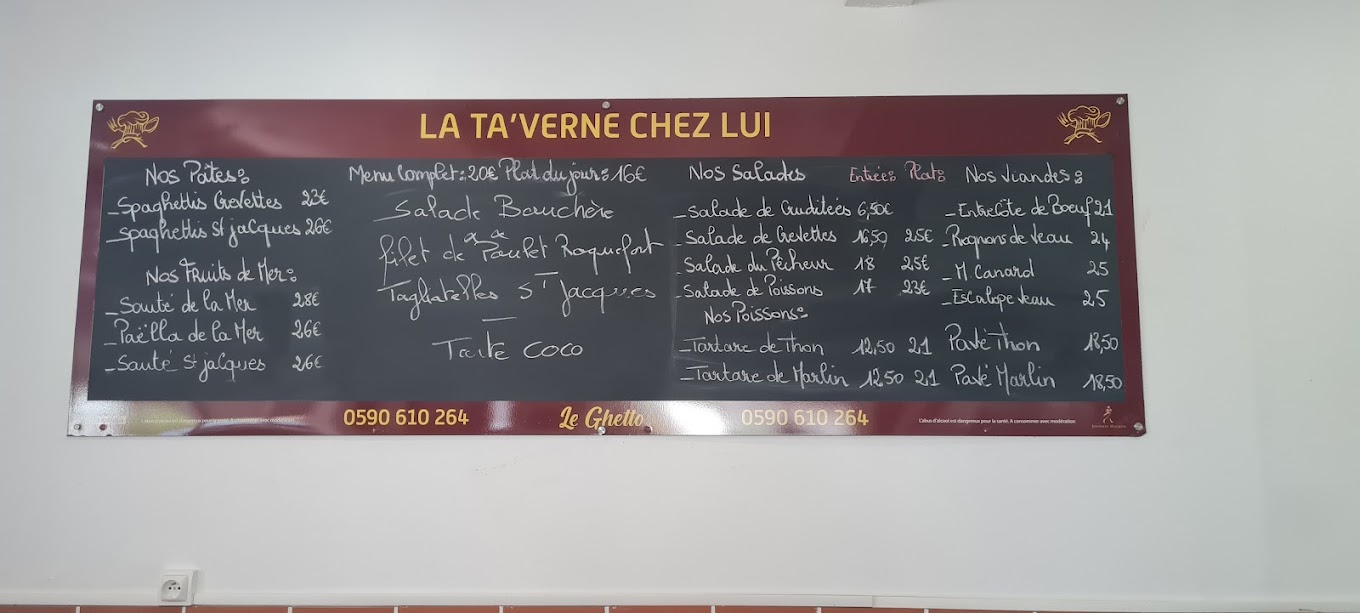 LA TA'VERNE CHEZ LUI
Nos Pâtes:
-Spaghettis Crevettes 23€
-Spaghettis St jacques 26€
Nos Fruits de Mer:
-Sauté de la Mer 28€
-Paëlla de la Mer 26€
-Sauté St jacques 26€
Menu Complet: 20€ Plat du jour: 16€
Salade Bouchère
filet de Poulet Roquefort
Tagliatelles St Jacques
Tarte coco
Nos Salades Entrée: Plat:
-Salade de Cruditées 6,50€
-Salade de Crevettes 16,50 25€
-Salade du Pêcheur 18 25€
-Salade de Poissons 17 23€
Nos Poissons:
-Tartare de Thon 12,50 21
-Tartare de Marlin 12,50 21
Nos Viandes:
-Entrecôte de Boeuf 21
-Rognons de Veau 24
-M. Canard 25
-Escalope Veau 25
Pavé Thon 18,50
Pavé Marlin 18,50
L'abus d'alcool est dangereux pour la santé. A consommer avec modération
0590 610 264
Le Ghetto
0590 610 264
L'abus d'alcool est dangereux pour la santé. A consommer avec modération
JOHNNIE WALKER